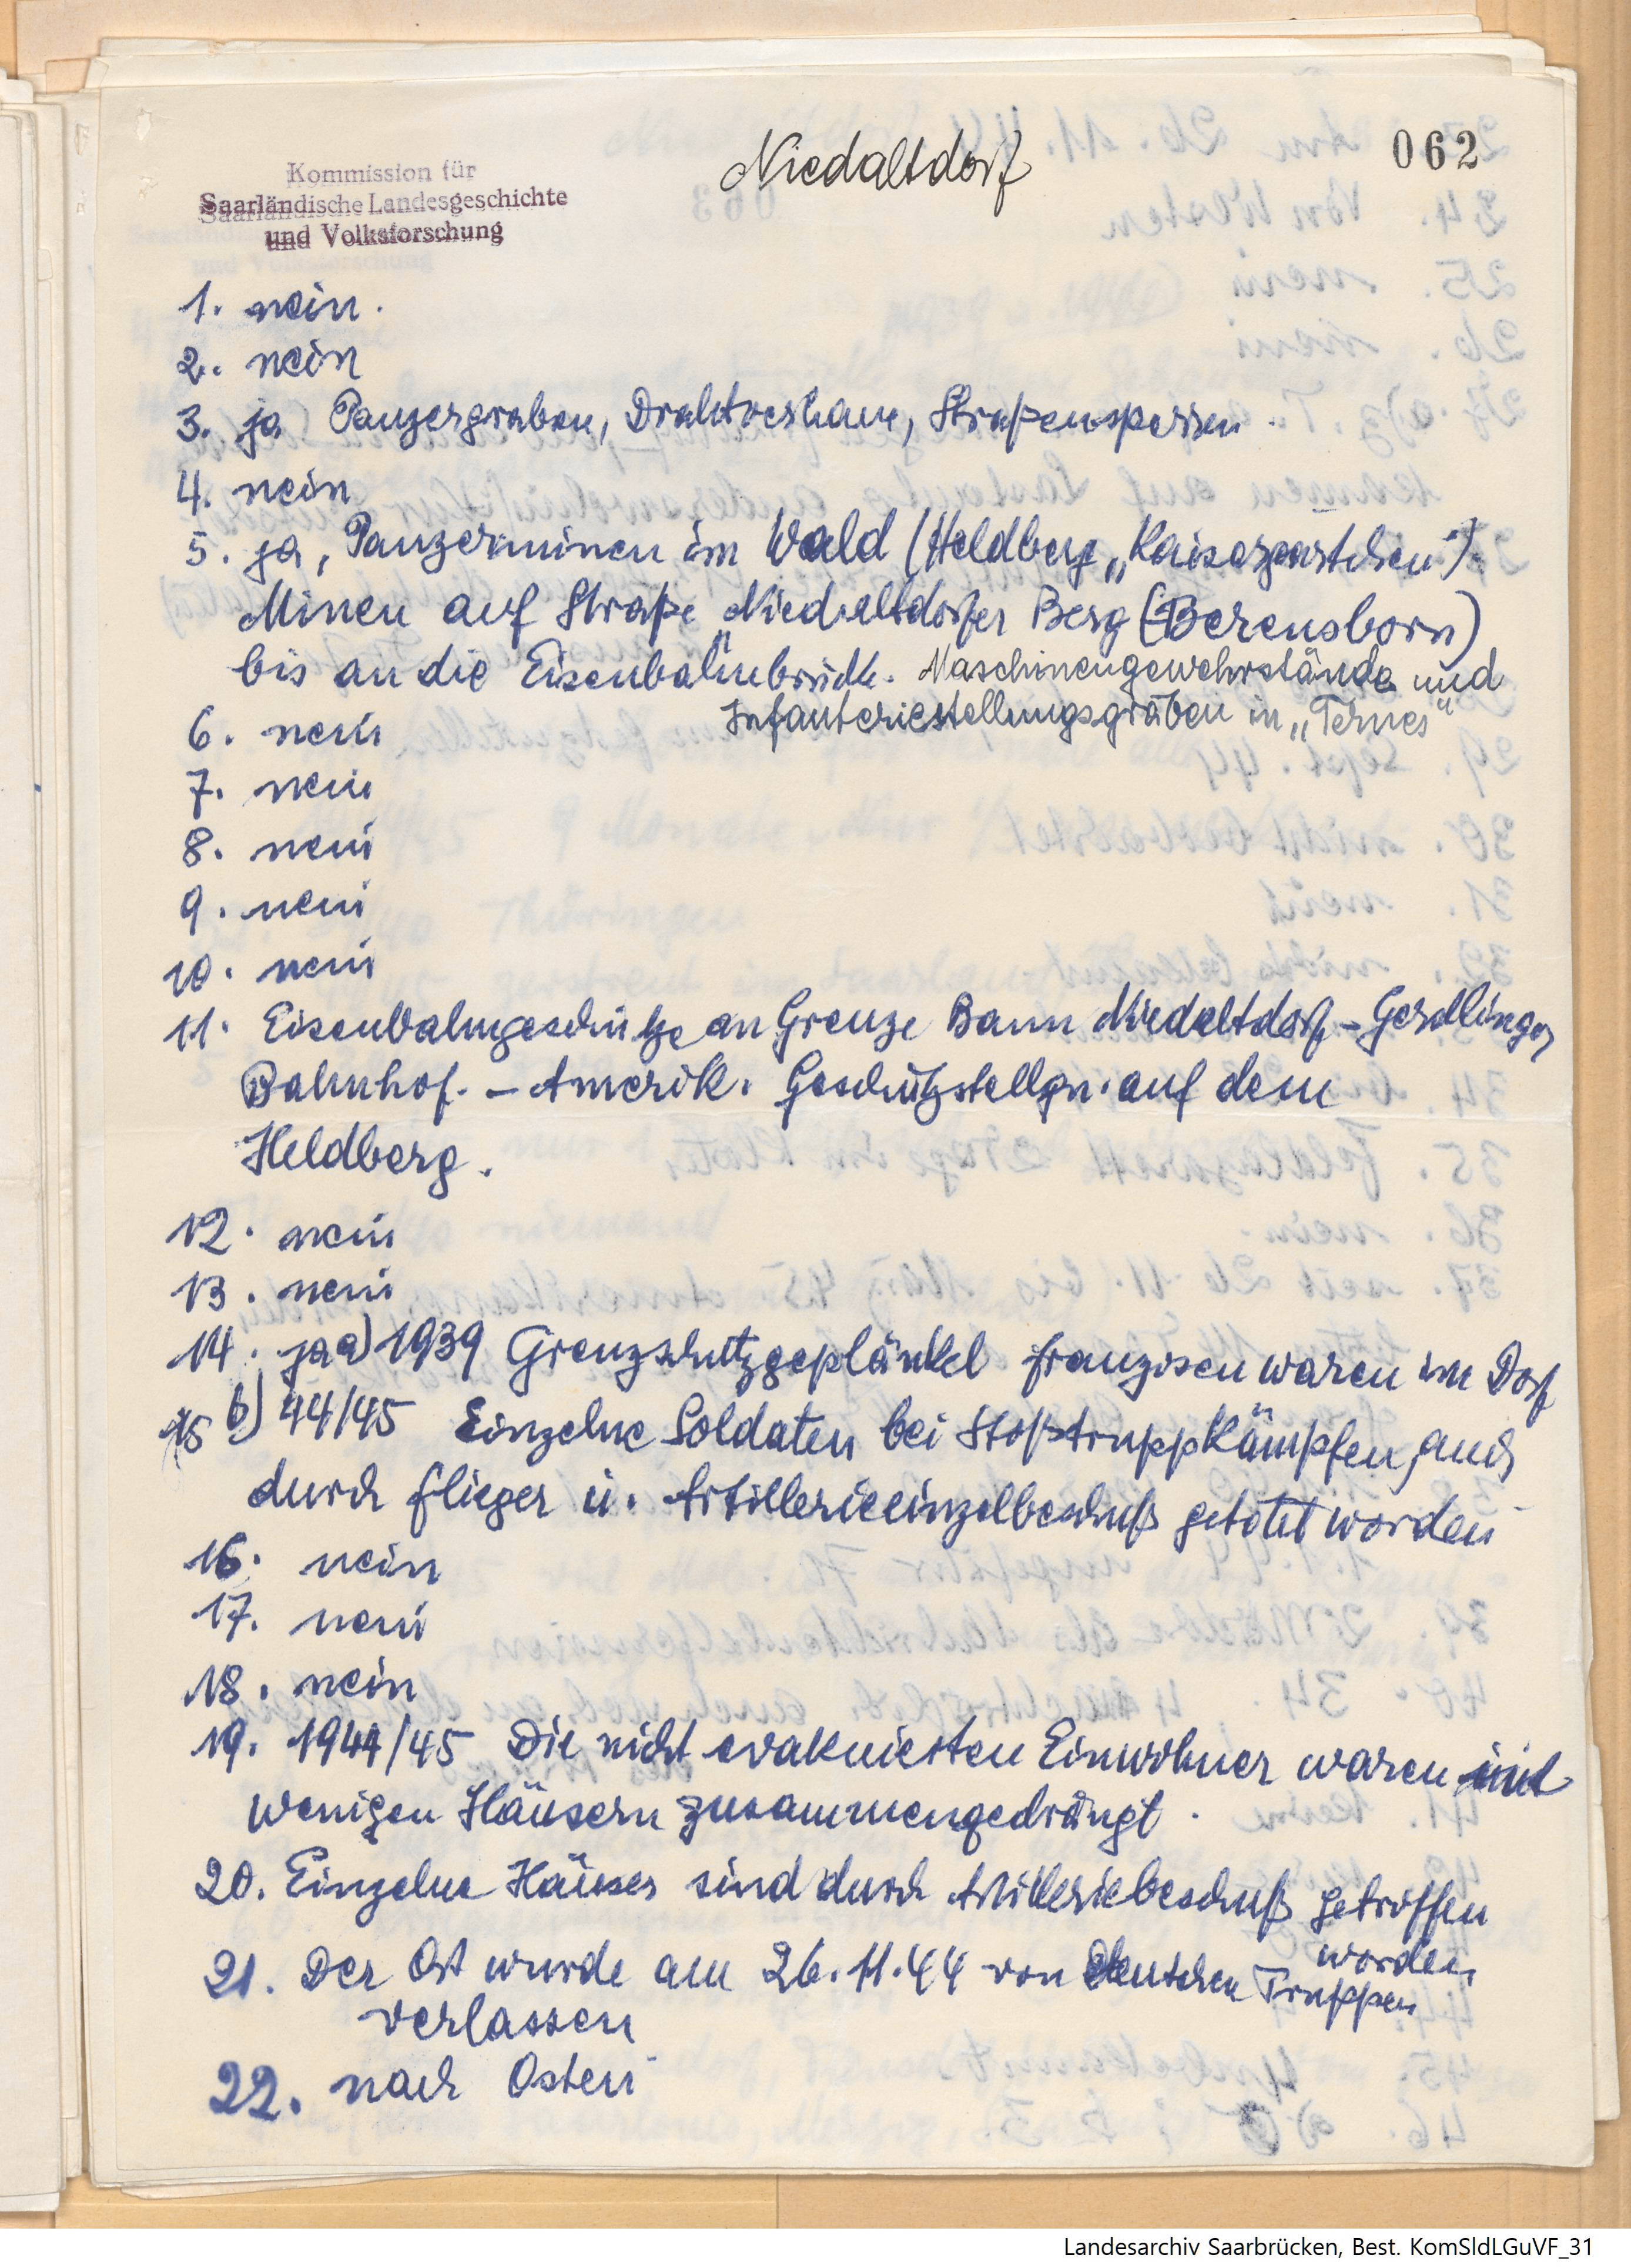 Niedaltdorf
062
Kommission für
Saarländische Landesgeschichte
und Volksforschung
1. nein.
2. nein
3. ja Panzergraben, Drahtverhaue, Straßensperren.
4. nein
5. ja, Panzerminen im Wald (Heldberg „Kaisergärtchen“)
Minen auf Straße Niedaltdorfer Berg (Berensborn)
bis an die Eisenbahnbrücke. Maschinengewehrstände und
Infanteriestellungsgräben in „Ternes“
6. nein
7. nein
8. nein
9. nein
10. nein
11. Eisenbahngeschütze an Grenze Bann Niedaltdorf – Gerdlinger
Bahnhof. – Amerik. Geschützstellgn. auf dem
Heldberg.
12. nein
13. nein
14. ja a) 1939 Grenzschutzgeplänkel Franzosen waren im Dorf
15 b) 44/45 Einzelne Soldaten bei Stoßtruppkämpfen, auch
durch Flieger u. Artillerieeinzelbeschuß getötet worden
16. nein
17. nein
18. nein
19. 1944/45 Die nicht evakuierten Einwohner waren in
wenigen Häusern zusammengedrängt.
20. Einzelne Häuser sind durch Artilleriebeschuß getroffen
worden
21. Der Ort wurde am 26.11.44 von deutschen Truppen
verlassen
22. nach Osten
Landesarchiv Saarbrücken, Best. KomSldLGuVF_31